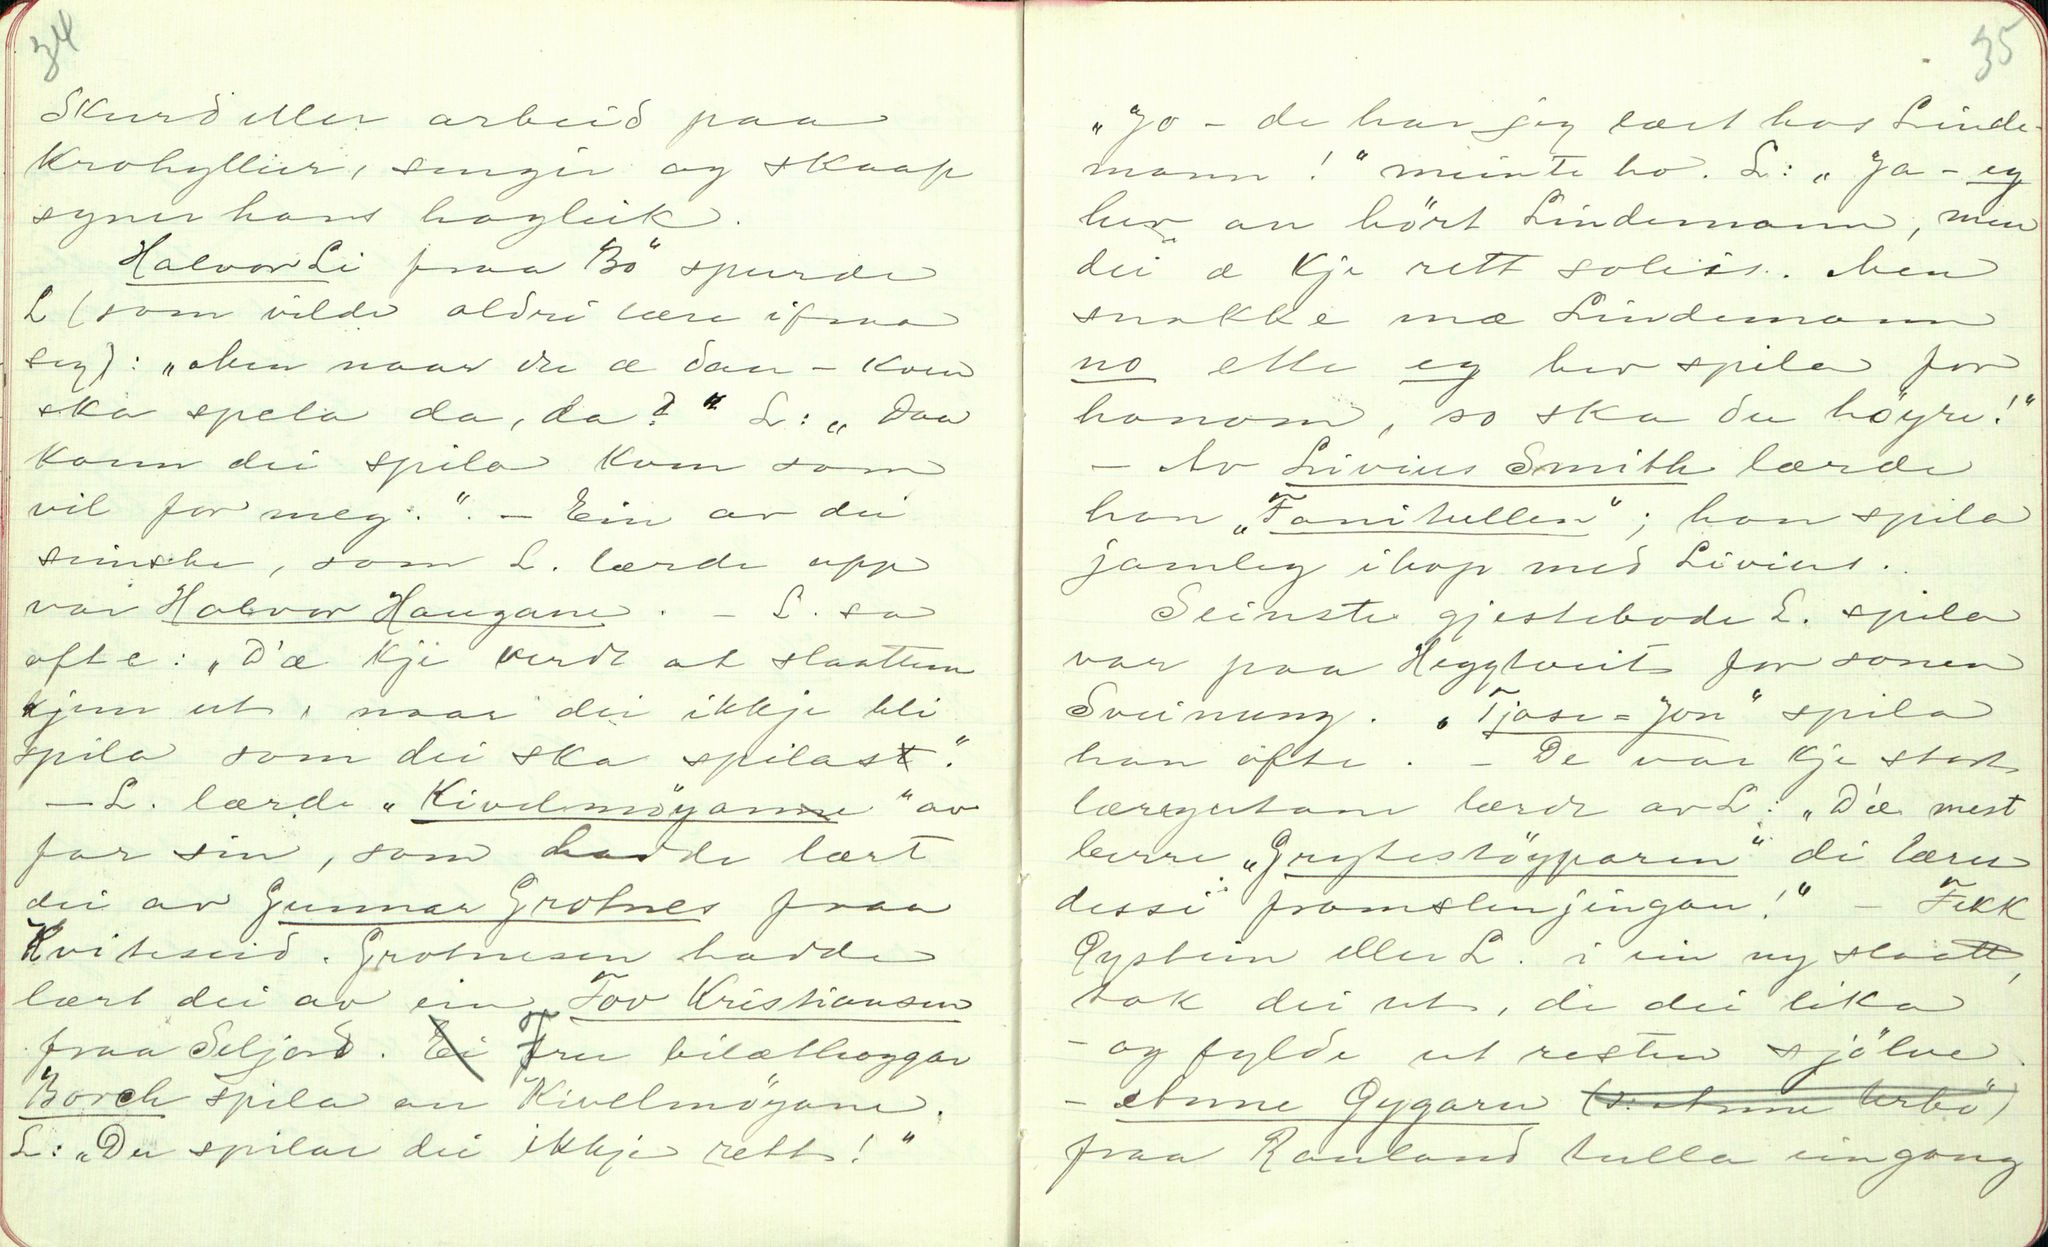 34
Skurd eller arbeid paa
Krohyllur, sengir og skaap
syner hans hagleik.
Halvor Li fraa Bö spurde
L (som vilde aldri lære ifraa
seg): „Men naar du æ dau – kven
ska spela da, da?" L: „Daa
kann dei spila kven som
vil for meg.". – Ein av dei
seinste, som L. lærde upp
var Halvor Haugane. – L. sa
ofte: „D'æ kje verdt at slaatten
kjem ut, naar dei ikkje bli
spila som dei ska spilast."
– L. lærde „Kivelmöyanne" av
far sin, som hadde lært
dei av Gunnar Grotnes fraa
Kviteseid. Grotnesen hadde
lært dei av ein Tov Kristiansen
fraa Seljord. Ei Fru bilæthoggar
Borch spila an Kivelmöyane.
L: „Du spilar dei ikkje rett!"
35
„Jo – de har jeg lært hos Linde-
mann!" meinte ho. L: „Ja – eg
hev an hört Lindemann, men
dei æ kje rett soleis. Men
snakke mæ Lindemann
no ette eg hev spila for
honom, so ska du höyre!"
– Av Livius Smith lærde
han „Fanitullen"; han spila
jamleg ihop med Livius.
Seinste gjestebode L. spila
var paa Heggtveit for sonen
Sveinung. „Tjøse=Jon" spila
han ofte. – De var kje stort
læregutane lærde av L: „D'æ mest
berre „Grytestöyparen" di lærer
desse framslenjingan!" – Fekk
Øystein eller L. i ein ny slaatt,
tok dei ut, de dei lika
– og fylde ut resten sjölve.
– Anne Gygaren (s. Anne Urbö)
fraa Rauland tulla eingong